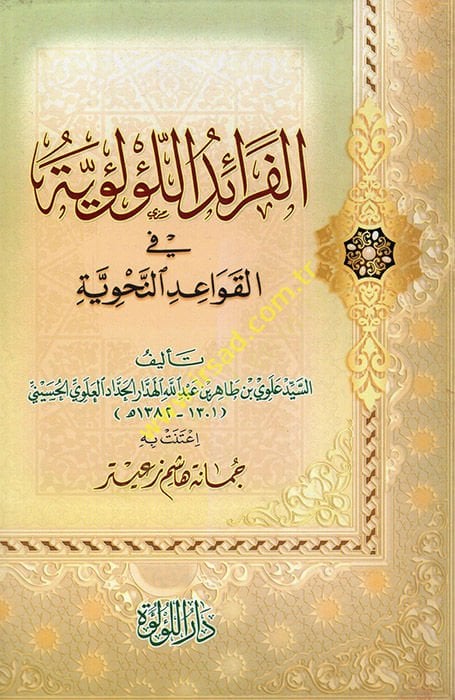 الفَرَائِدُ اللُّؤْلُؤِيَّةُ
فِي
القَوَاعِدِ النَّحْوِيَّةِ
تَأليفُ
السَّيِّدْ عَلَوِي بْن طَاهِر بْن عَبْدِ اللهِ الهَدَّار الحَدَّاد العَلَوِي الحُسَيْنِيّ
(١٣٠١ - ١٣٨٢ هـ)
اِعْتَنَتْ بِهِ
جُمَانَة هَاشِم زعيتر
دَارُ اللُّؤْلُؤَة